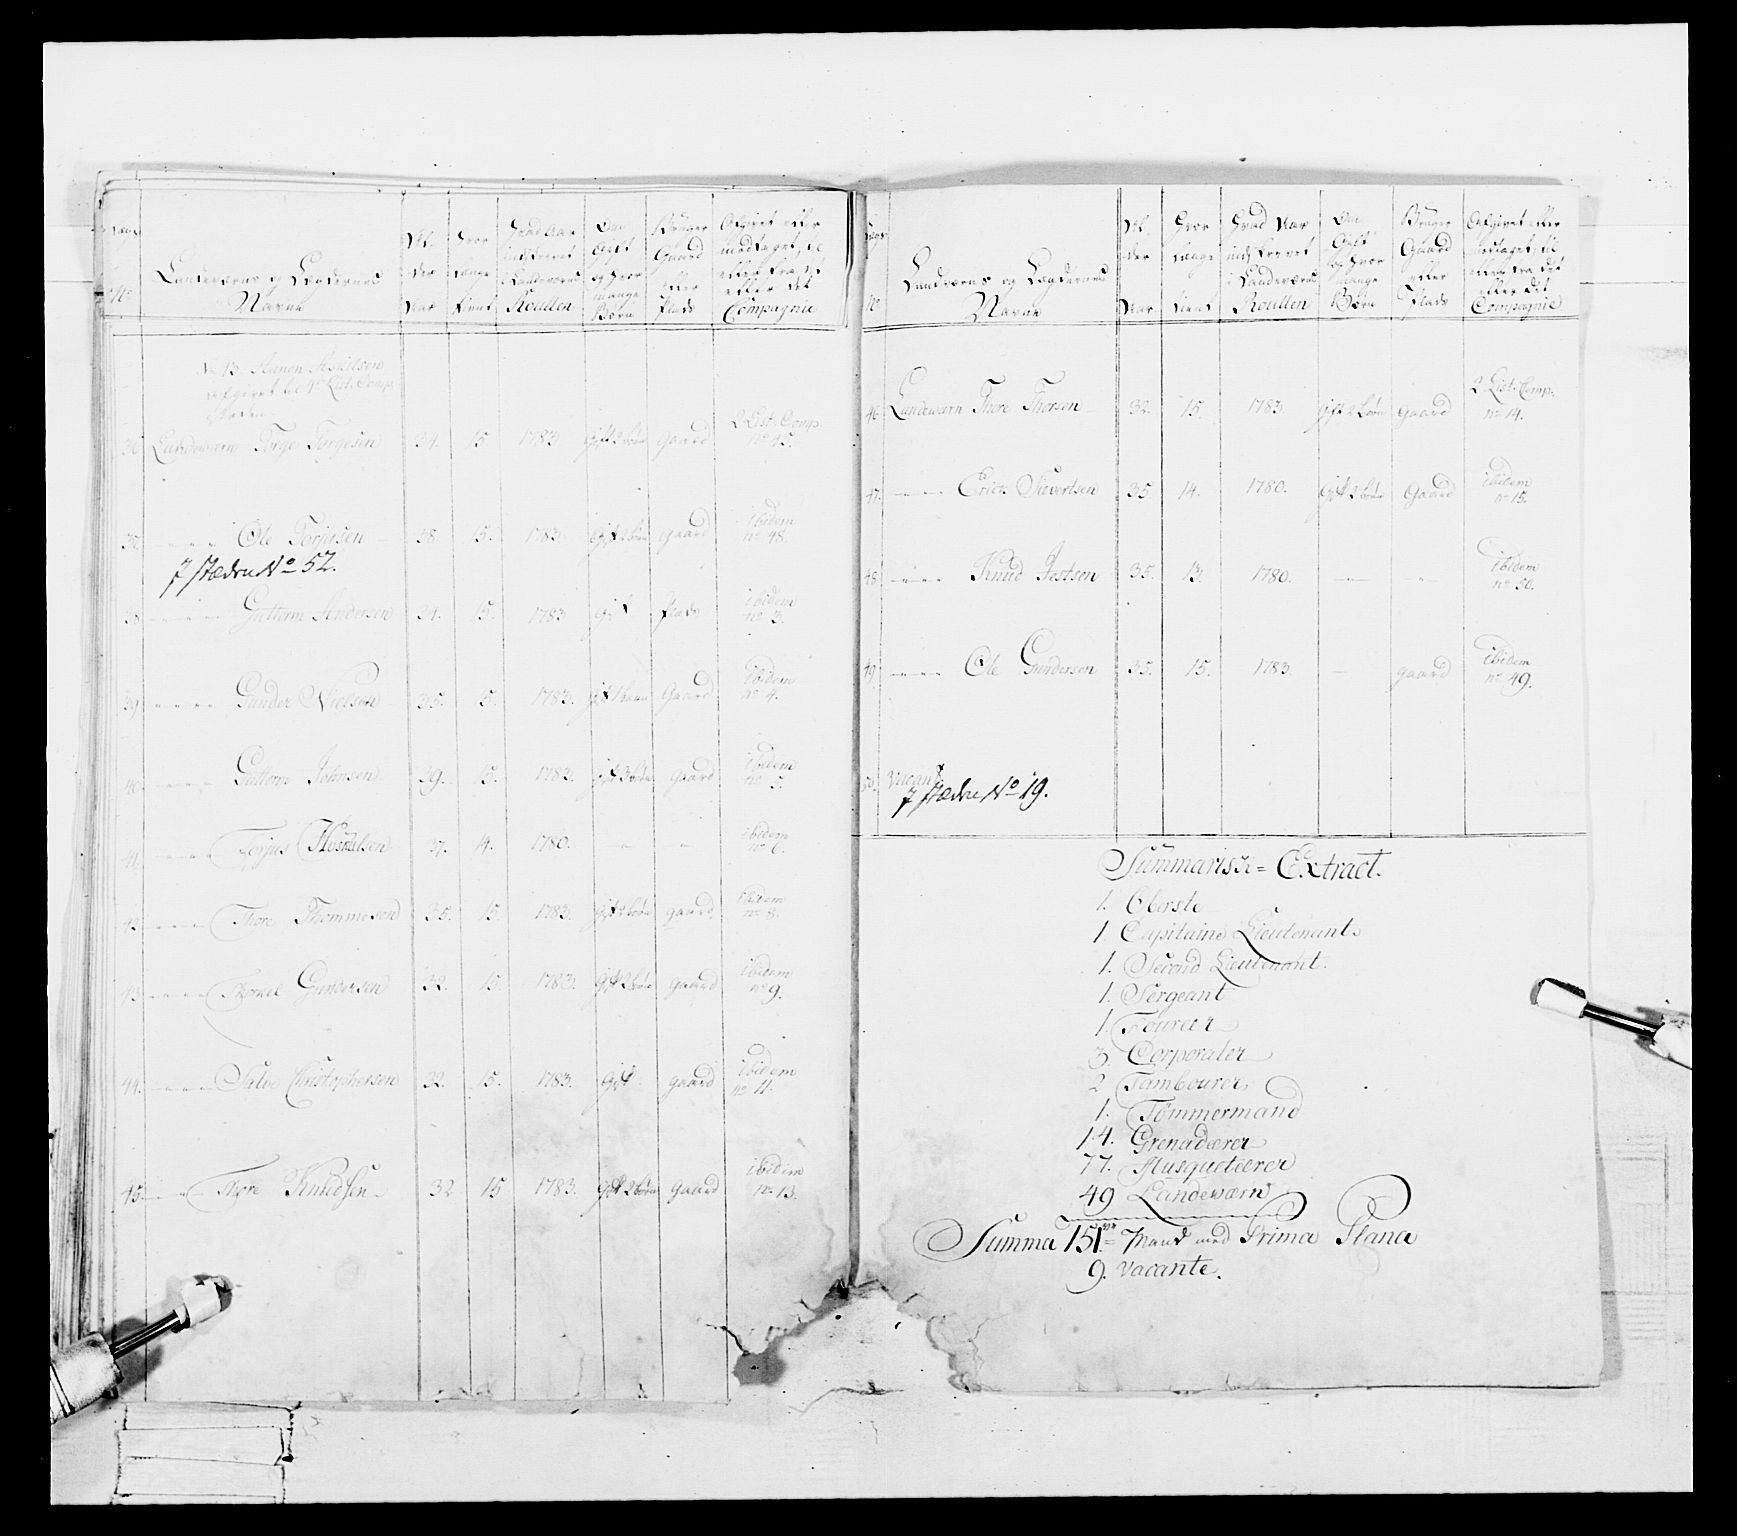 Landværns og Lægdernes Navne
Al- der Aar
hvor længe tient
hvad Aar indskrevet i Landværns Roullen
Om Gift og hvor mange Børn
Bruger Gaard eller Plads
Afgivet eller modtaget, til eller fra dit eller det Compagnie
No 13. Aanon Aslulsen
afgivet til 1te List: Comp:
36 Landeværn Torge Torgesen 34. 15 1783 Gift 2 børn Gaard 2 List: Comp: no 45.
37. Ole Torjusen 38. 15. 1783. Gift 2 børn Gaard ibidem no 48.
I stæden No 52.
38 Guttorm Andersen 34. 15. 1783 Gift Plads ibidem no 3.
39 Gunder Nielsen 35. 15. 1783. Gift 1 barn Gaard ibidem no 4.
40. Guttorm Johnsen 39. 15. 1783. Gift 3 børn gaard ibidem no 5.
41. Torjus Aslulsen 37. 14. 1780. ibidem no 6.
42. Thore Thommesen 35. 15. 1783. Gift 2 børn gaard ibidem no 8.
43. Thorkel Gundersen 32. 15. 1783. Gift 2 børn gaard ibidem no 9.
44. Salve Christophersen 32. 15. 1783. Gift gaard ibidem no 11.
45. Thore Knudsen 32 15 1783. Gift 2 børn gaard ibidem no 13.
No
Landværns og Lægdernes Navne
Al- der Aar
hvor længe tient
hvad Aar indskrevet i Landværns Roullen
Om Gift og hvor mange Børn
Bruger Gaard eller Plads
Afgivet eller modtaget, til eller fra det eller det Compagnie
46. Landeværn Thore Thorsen 32. 15. 1783. Gift 2 børn gaard 2 List: Comp: no 14.
47. Erich Sivertsen 35. 14. 1780. Gift 2 børn Gaard ibidem no 15.
48 Knud Jostsen 35. 13. 1780. ibidem no 50.
49. Ole Gundersen 35. 15. 1783. gaard ibidem no 49.
50. Vacant
I stæden No 19.
Summarisk = Extract.
1. Oberste
1. Capitaine Lieutenant
1. Second Lieutenant.
1. Sergeant
1. Fourer
3. Corporaler
2 Tambourer
1. Tømmermand
14. Grenaderer
77. Musqueterer
49 Landeværn
Summa 151. Mand med Prima Plana
9. Vacante.